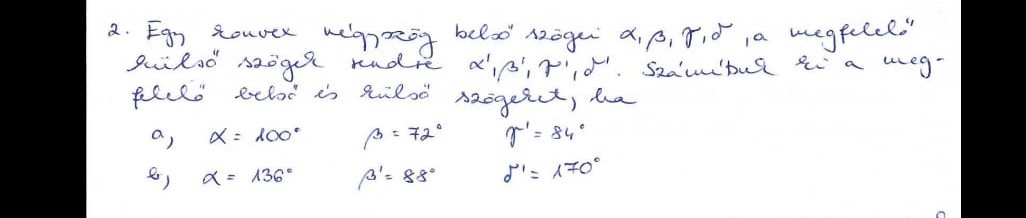 2. Egy konvex négyszög belső szögei α, β, γ, δ, a megfelelő
külső szögek rendre α', β', γ', δ'. Számítsuk ki a meg-
felelő belső és külső szögeket, ha
a, α = 100° β = 72° γ' = 84°
b, α = 136° β' = 88° δ' = 170°